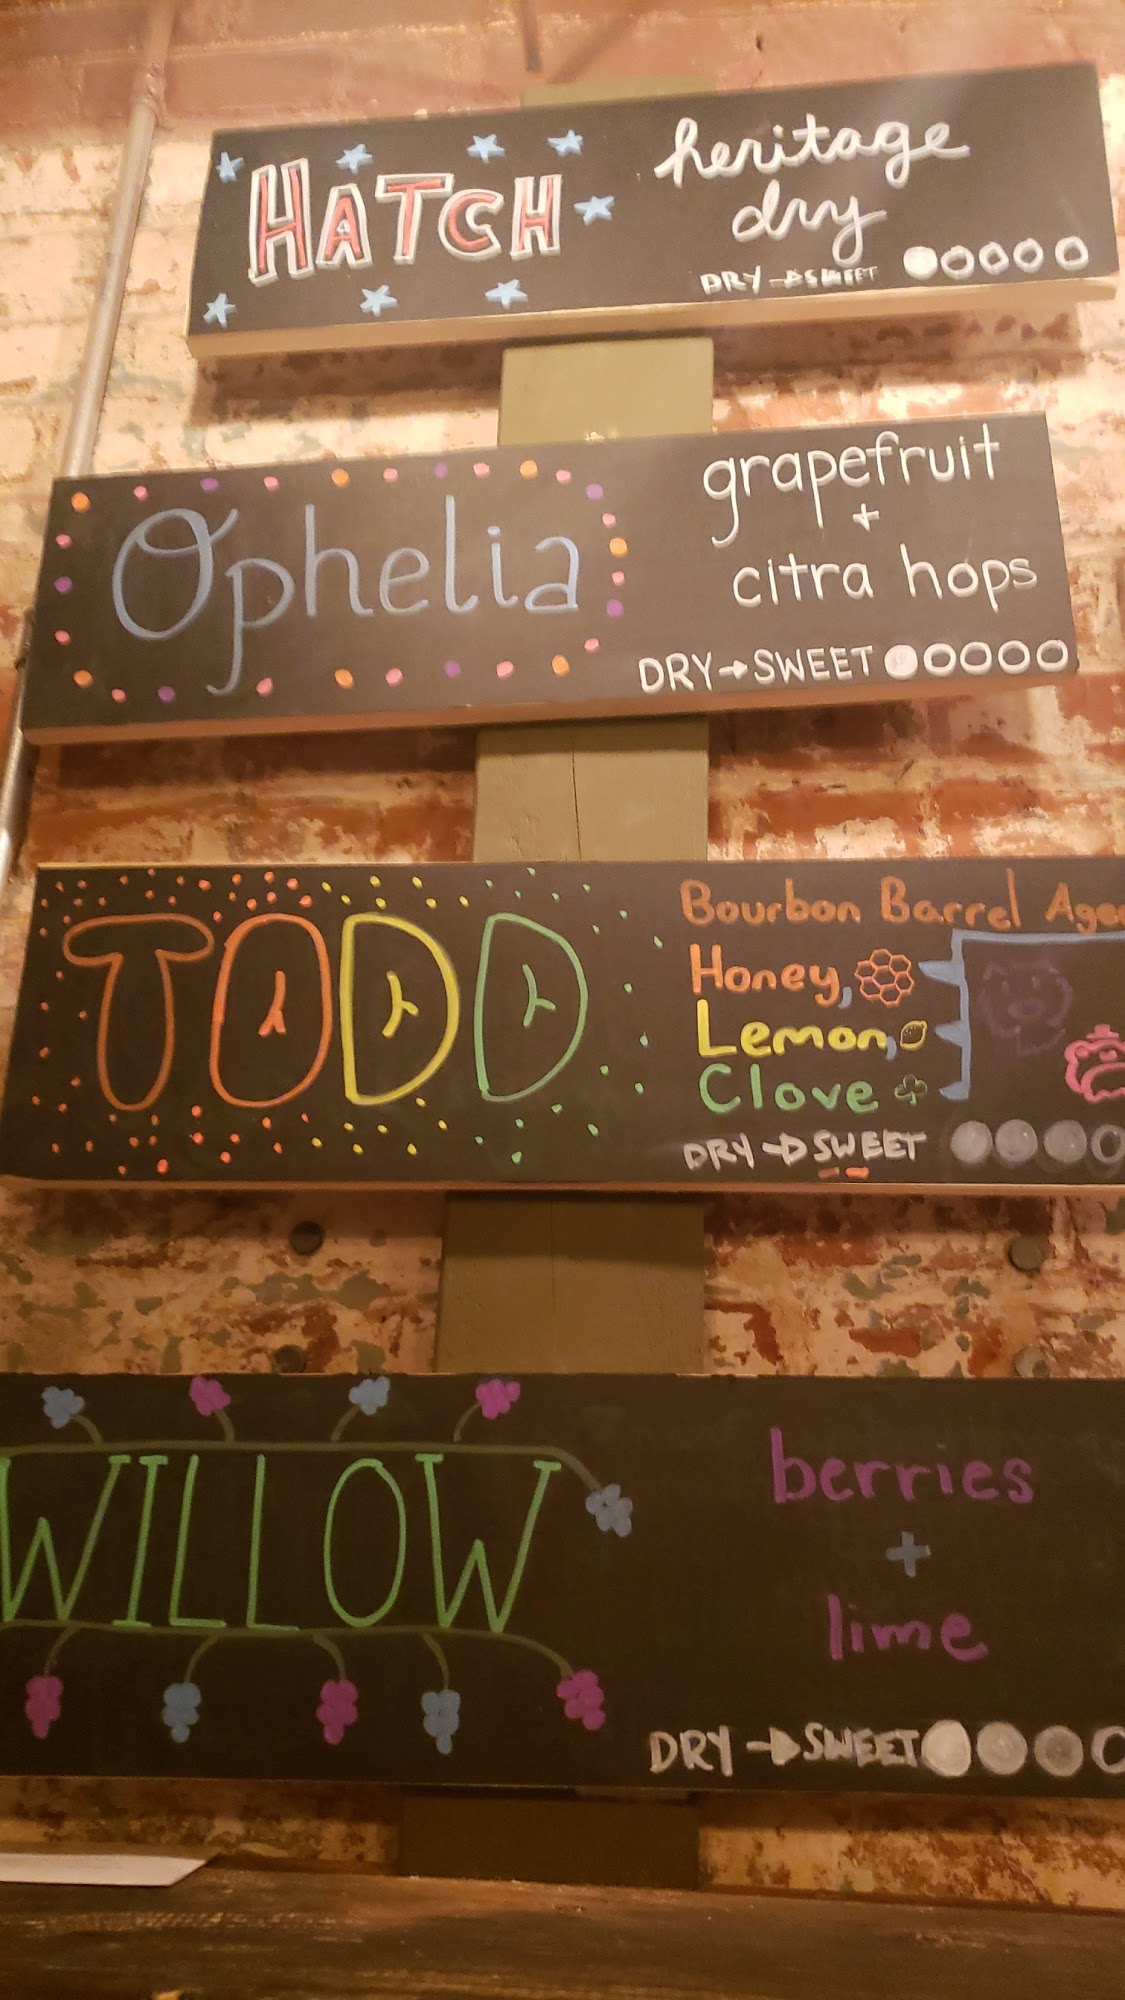 HATCH
heritage
dry
DRY → SWEET
Ophelia
grapefruit
+
citra hops
DRY → SWEET
TODD
Bourbon Barrel
Honey,
Lemon,
Clove
DRY → SWEET
WILLOW
berries
+
lime
DRY → SWEET